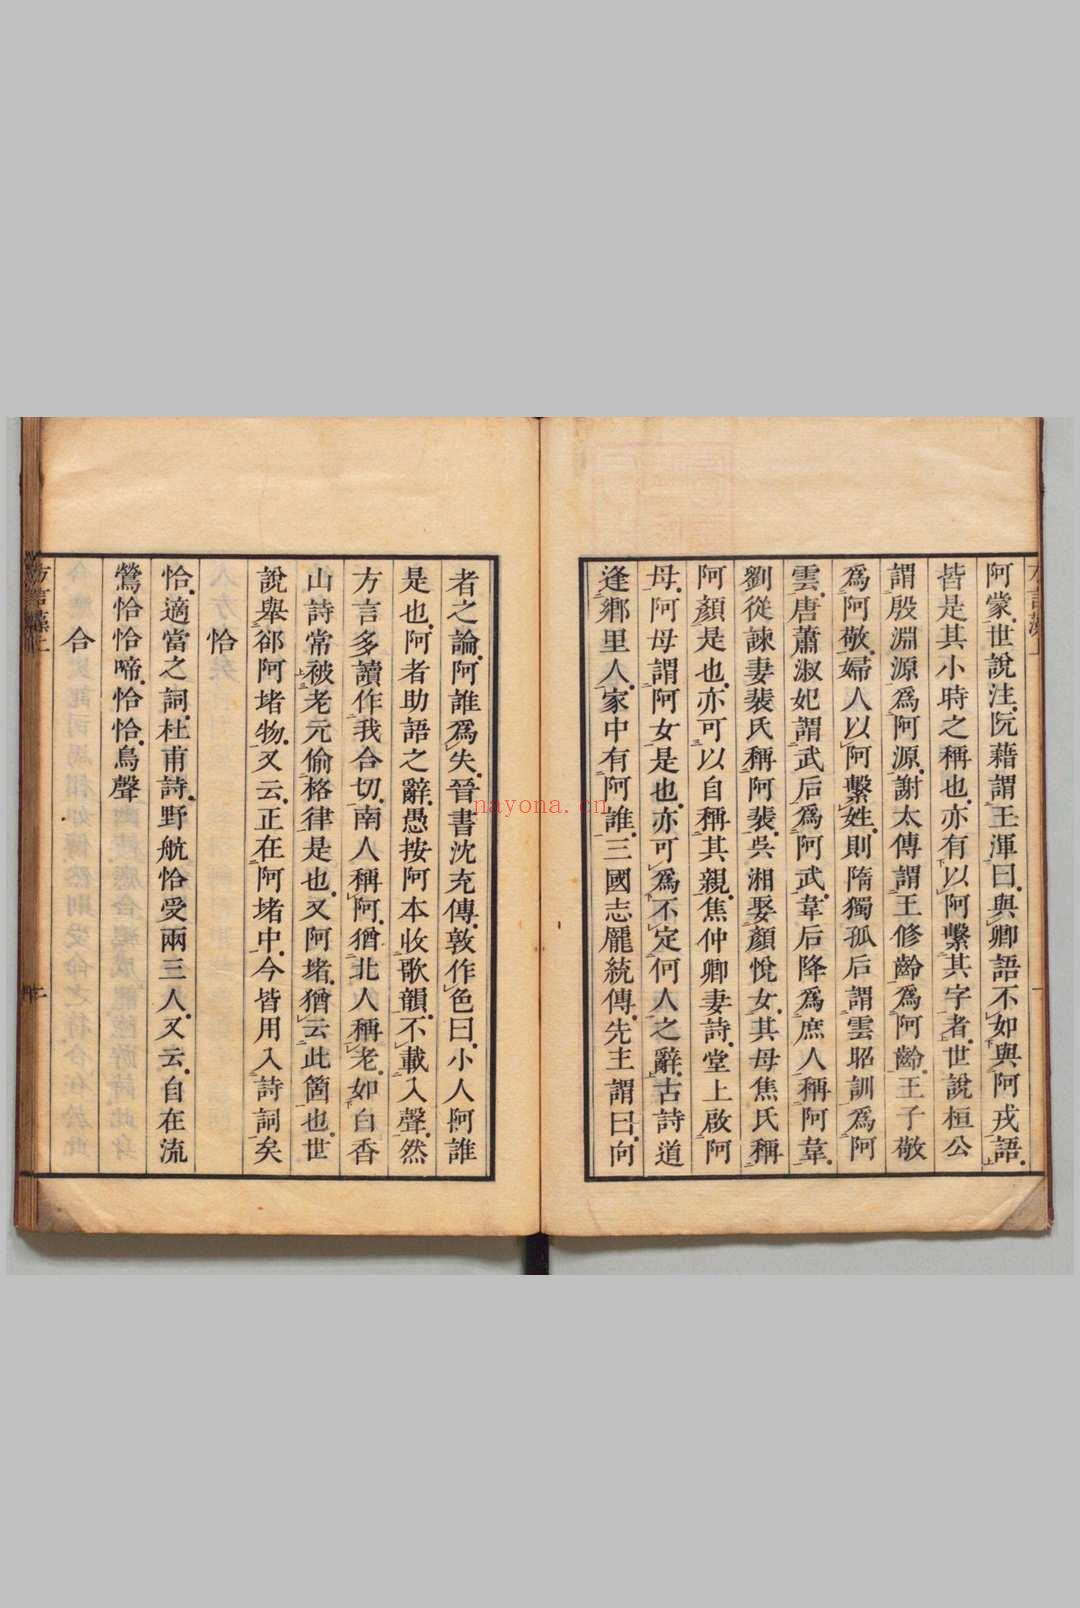 阿蒙世說注阮藉謂王渾曰與卿語不如與阿戎語
皆是其小時之稱也亦有以阿繫其字者世說桓公
謂殷淵源爲阿源謝太傅謂王修齡爲阿齡王子敬
爲阿敬婦人以阿繫姓則隋獨孤后謂雲昭訓爲阿
雲唐蕭淑妃謂武后爲阿武韋后降爲庶人稱阿韋
劉從諫妻裴氏稱阿裴吳湘娶顏悅女其母焦氏稱
阿顏是也亦可以自稱其親焦仲卿妻詩堂上啟阿
母阿母謂阿女是也亦可爲不定何人之辭古詩道
逢鄉里人家中有阿誰三國志龐統傳先主謂曰向
者之論阿誰爲失晉書沈充傳敦作色曰小人阿誰
是也阿者助語之辭愚按阿本收歌韻不載入聲然
方言多讀作我合切南人稱阿猶北人稱老如白香
山詩常被老元偷格律是也又阿堵猶云此箇也世
說舉郤阿堵物又云正在阿堵中今皆用入詩詞矣
恰
恰適當之詞杜甫詩野航恰受兩三人又云自在流
鶯恰恰啼恰恰鳥聲
合
nayona.cn